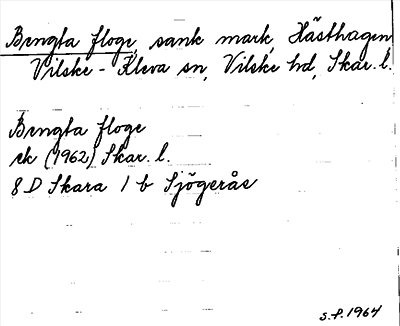 Bengta floge, sank mark, Hästhagen
Vilske-Kleva sn, Vilske hd, Skar. l.
Bengta floge
ek (1962) Skar. l.
8 D Skara 1 b Sjögerås
S.P. 1964